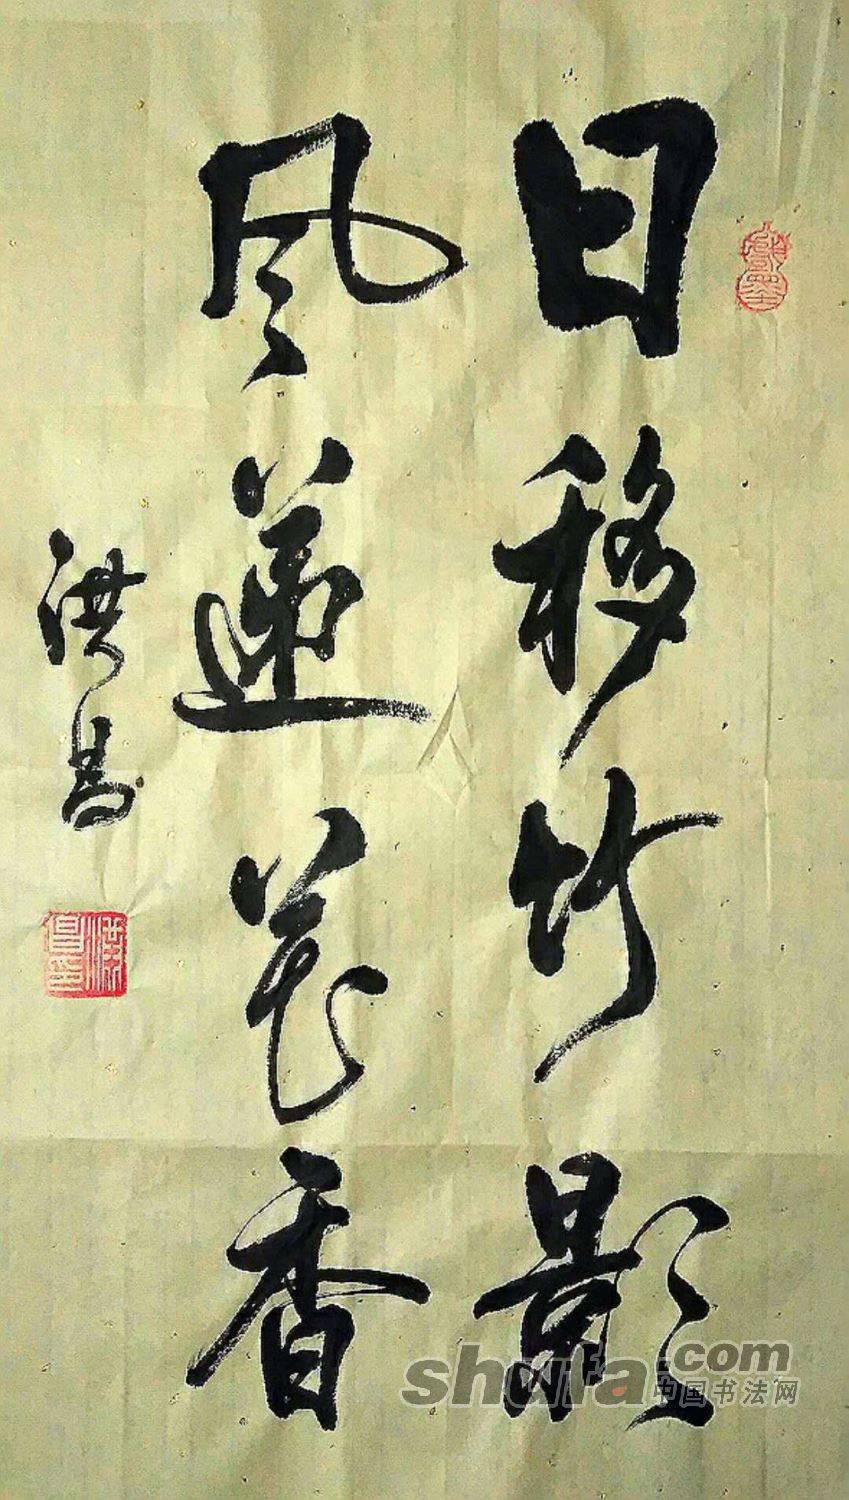 日移竹影
风递花香
洪昌
shufa.com
中国书法网